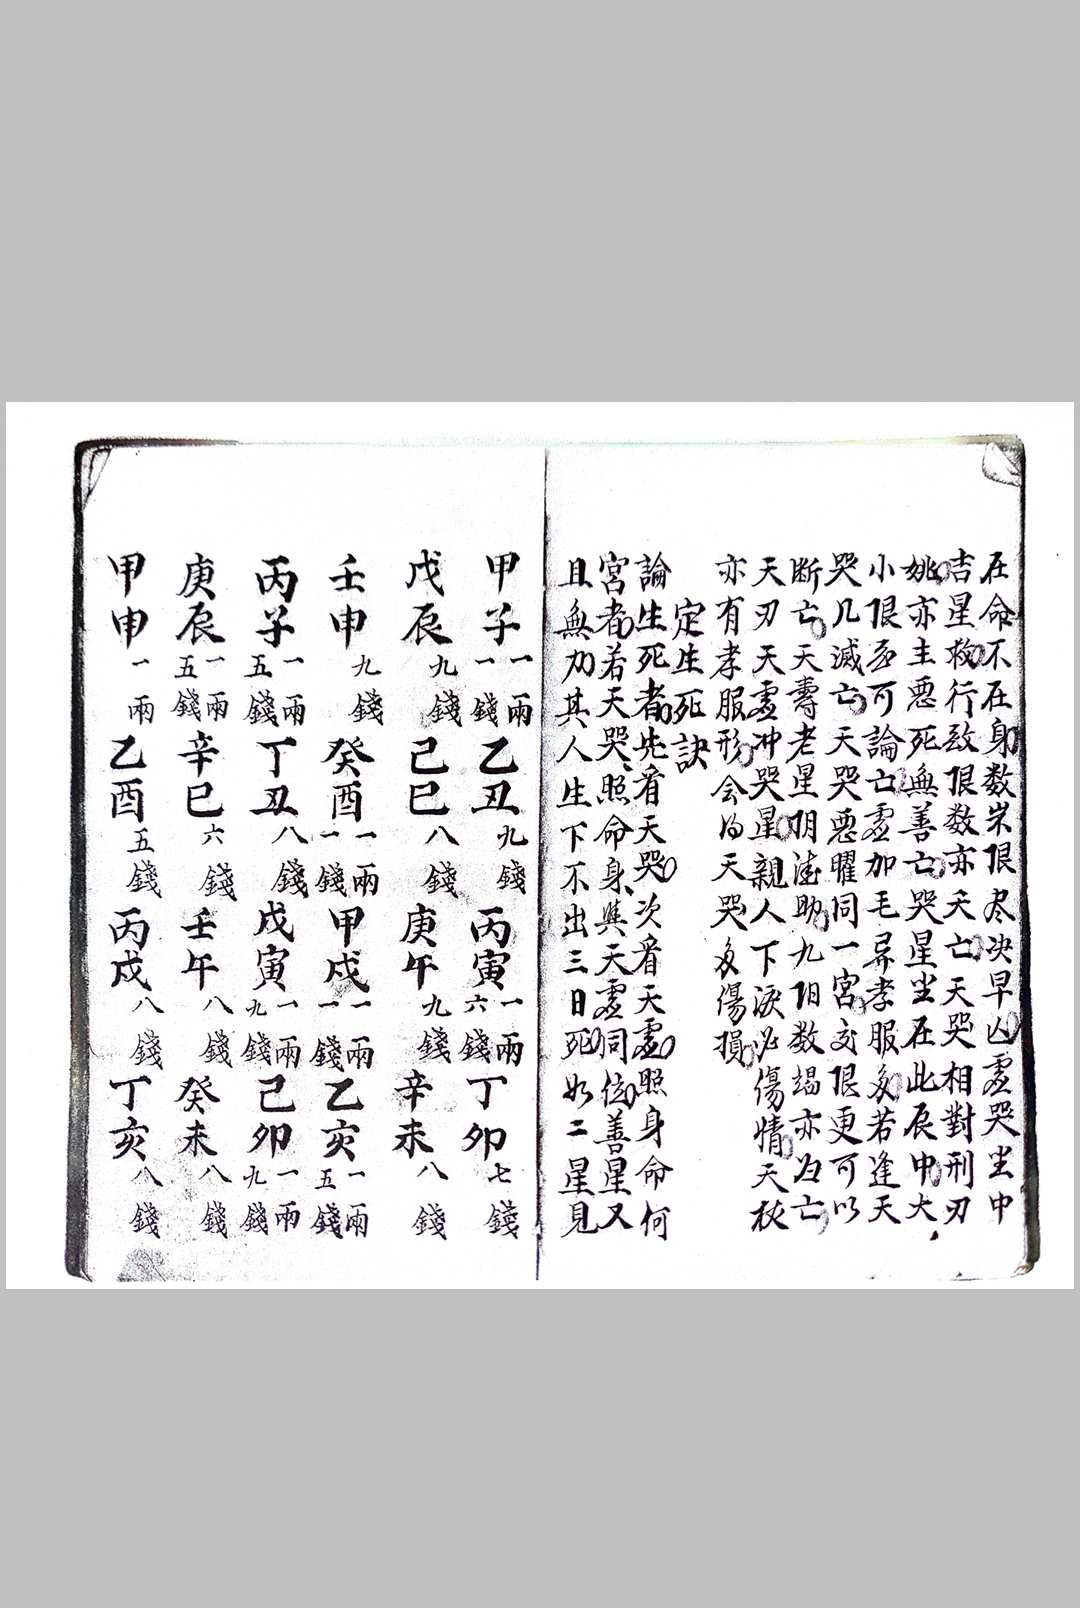 在命不在身数米限尽决早凶虚哭坐中
吉星救行致限数亦夭亡天哭相對刑刃
姚亦主惡死無善亡哭星坐在此辰中大
小限亟可論亡虚加毛异孝服多若逢天
哭几滅亡天哭惡曜同一宮交限更可以
断亡天壽老星阴隲助九阳数竭亦为亡
天刃天虚冲哭星親人下淚必傷情天杖
亦有孝服形会为天哭多傷損
定生死訣
論生死者先看天哭次看天虚照身命何
宮者若天哭照命身與天虚同位善星又
且無力其人生下不出三日死如二星見
甲子一兩一錢乙丑九錢丙寅一兩六錢丁卯七錢
戊辰九錢己巳八錢庚午九錢辛未八錢
壬申九錢癸酉一兩一錢甲戌一兩一錢乙亥一兩五錢
丙子一兩五錢丁丑八錢戊寅一兩九錢己卯一兩九錢
庚辰一兩五錢辛巳六錢壬午八錢癸未八錢
甲申一兩乙酉五錢丙戌八錢丁亥八錢